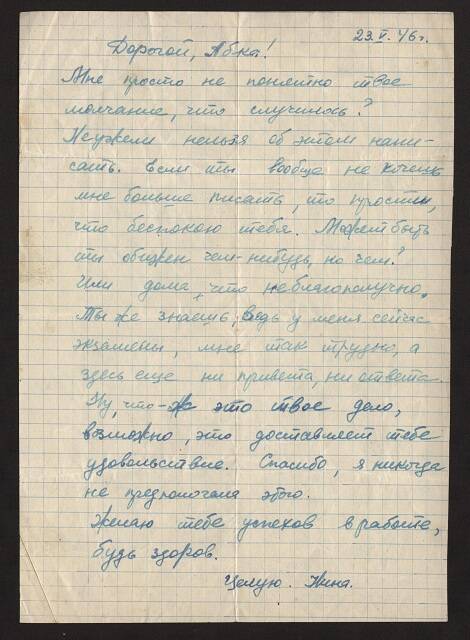 23.V.46г.
Дорогой, Абка!
Мне просто не понятно твое
молчание, что случилось?
Неужели нельзя об этом напи-
сать. Если ты вообще не хочешь
мне больше писать, то прости,
что беспокою тебя. Может быть
ты обижен чем-нибудь, но чем?
Или дома, что неблагополучно.
Ты же знаешь, ведь у меня сейчас
экзамены, мне так трудно, а
здесь еще ни привета, ни ответа.
Ну, что-ж это твое дело,
возможно, это доставляет тебе
удовольствие. Спасибо, я никогда
не предпологала этого.
Желаю тебе успехов в работе,
будь здоров.
Целую. Нина.